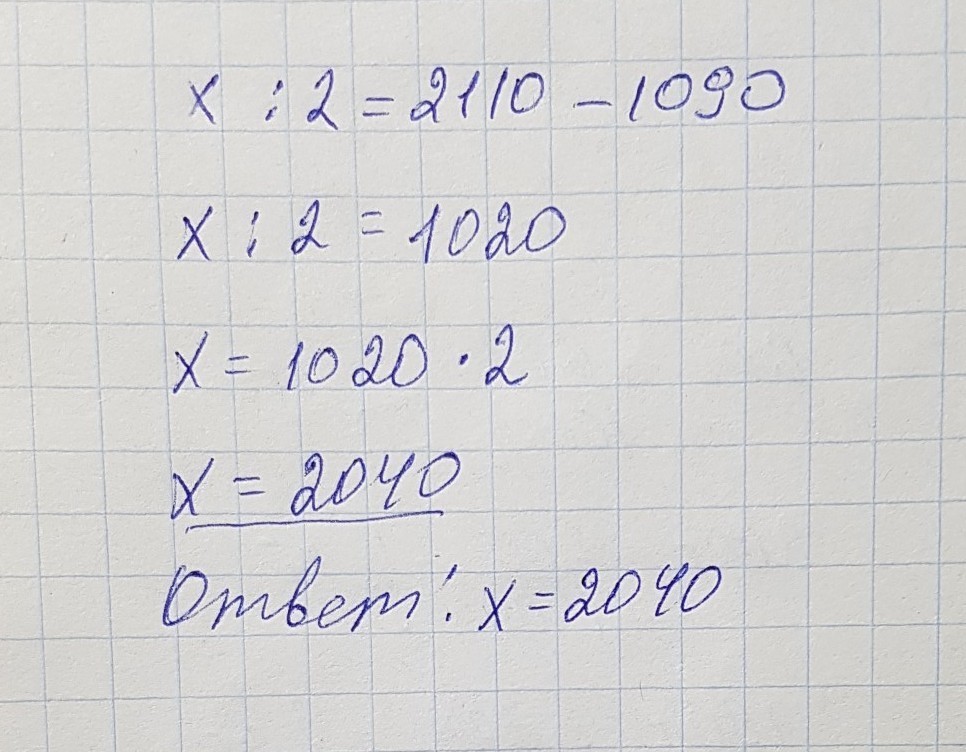 x : 2 = 2110 - 1090
x : 2 = 1020
x = 1020 · 2
x = 2040
Ответ: x = 2040